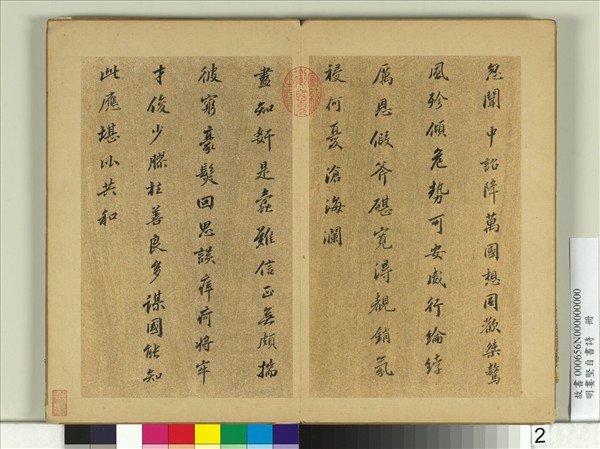 忽聞中詔降萬國想同歡桀驁
風殄傾危勢可安威行綸綍
厲恩假斧碪寬得覩銷氛
祲何憂滄海瀾
盡知奸是蠹難信正無頗揣
彼窮豪髮回思誤痒疴將牢
才俊少膠柱善良多謀國能知
此應堪以共和
故書000656N000000000
明婁堅自書詩 冊
2